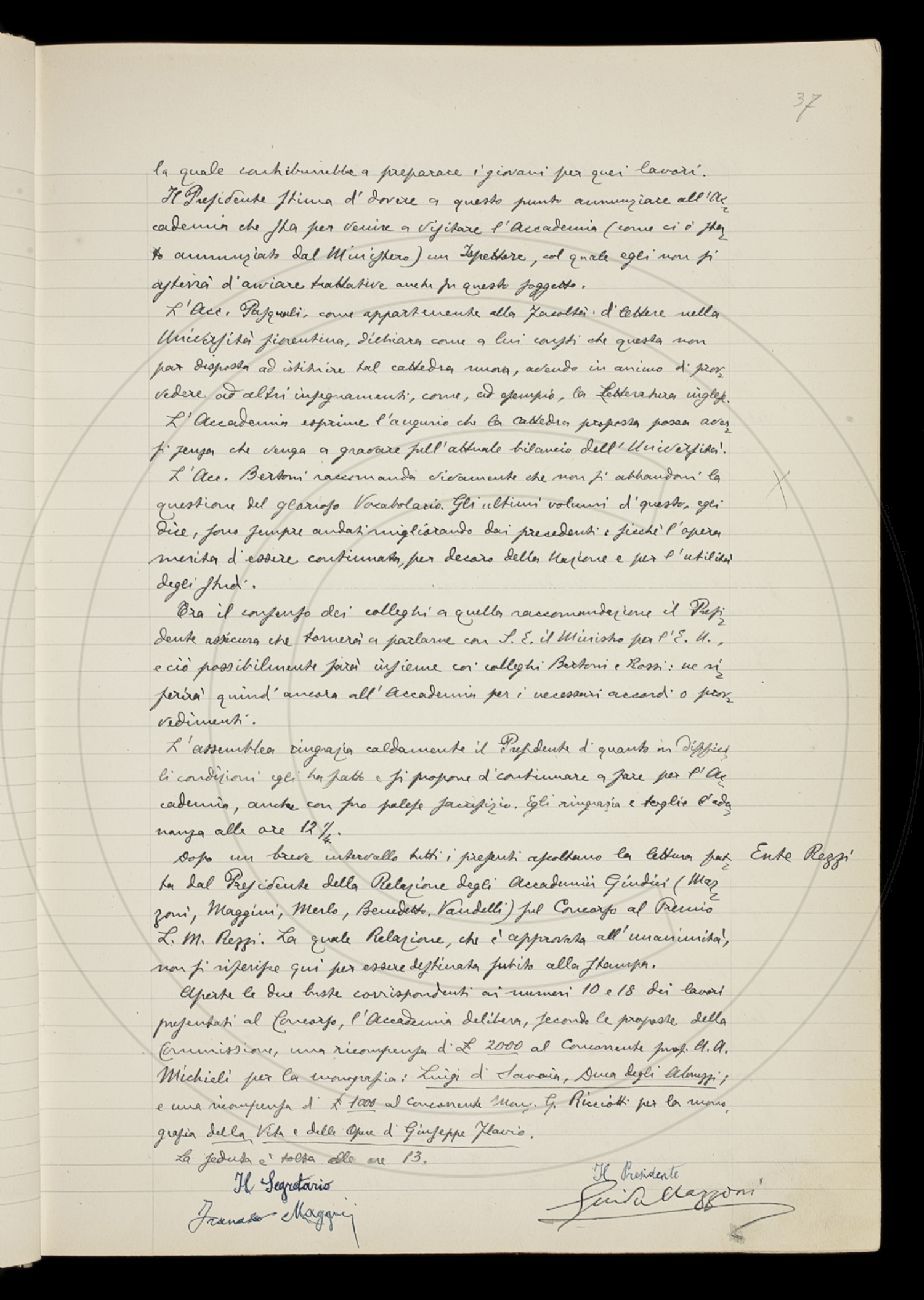 37
la quale contribuirebbe a preparare i giovani per quei lavori.
Il Presidente stima d'dovere a questo punto annunziare all'Ac-
cademia che sta per venire a visitare l'Accademia (come ci è sta-
to annunziato dal Ministero) un Ispettore, col quale egli non si
asterrà d'avviare trattative anche su questo soggetto.
L'Acc. Pasquali, come appartenente alla Facoltà d'lettere nella
Università fiorentina, dichiara come a lui consti che questa non
par disposta ad istituire tal cattedra nuova, avendo in animo di prov-
vedere ad altri insegnamenti, come, ad esempio, la Letteratura inglese.
L'Accademia esprime l'augurio che la cattedra proposta possa aver-
si senza che venga a gravare sull'attuale bilancio dell'Università.
L'Acc. Bertoni raccomanda vivamente che non si abbandoni la
questione del glorioso Vocabolario. Gli ultimi volumi d'questo, egli
dice, sono sempre andati migliorando dai precedenti; sicché l'opera
merita d'essere continuata, per decoro della Nazione e per l'utilità
degli studi.
Tra il consenso dei colleghi a quella raccomandazione il Presi-
dente assicura che tornerà a parlarne con S. E. il Ministro per l'E. N.,
e ciò possibilmente farà insieme coi colleghi Bertoni e Rossi: ne ri-
ferirà quindi ancora all'Accademia per i necessari accordi o prov-
vedimenti.
L'assemblea ringrazia caldamente il Presidente d'quanto in diffici-
li condizioni egli ha fatto e si propone d'continuare a fare per l'Ac-
cademia, anche con suo palese sacrifizio. Egli ringrazia e toglie l'adu-
nanza alle ore 12 1/4.
Dopo un breve intervallo tutti i presenti ascoltano la lettura fat-
Ente Rezzi
ta dal Presidente della Relazione degli Accademici Giudici (Maz-
zoni, Maggini, Merlo, Benedetto, Vandelli) sul Concorso al Premio
L. M. Rezzi. La quale Relazione, che è approvata all'unanimità,
non si riferisce qui per essere destinata subito alla stampa.
Aperte le due buste corrispondenti ai numeri 10 e 18 dei lavori
presentati al Concorso, l'Accademia delibera, secondo le proposte della
Commissione, una ricompensa d'£ 2000 al Concorrente prof. A. A.
Michieli per la monografia: Luigi d'Savoia, Duca degli Abruzzi;
e una ricompensa d'£ 1000 al concorrente Mons. G. Ricciotti per la mono-
grafia della Vita e delle Opere d'Giuseppe Flavio.
La seduta è tolta alle ore 13.
Il Segretario
Il Presidente
Francesco Maggini
Guido Mazzoni